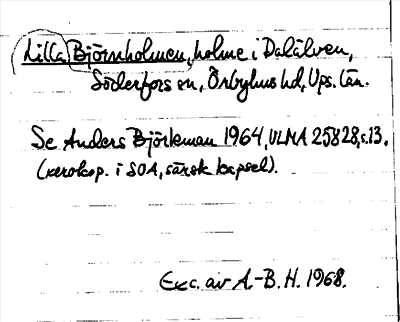 Lilla Björnholmen, holme i Dalälven,
Söderfors sn, Örbyhus hd, Ups. län.
Se Anders Björkman 1964, ULMA 25828, s. 13.
(xerokop. i SOA, särsk. kapsel).
Exc. av A.-B. H. 1968.